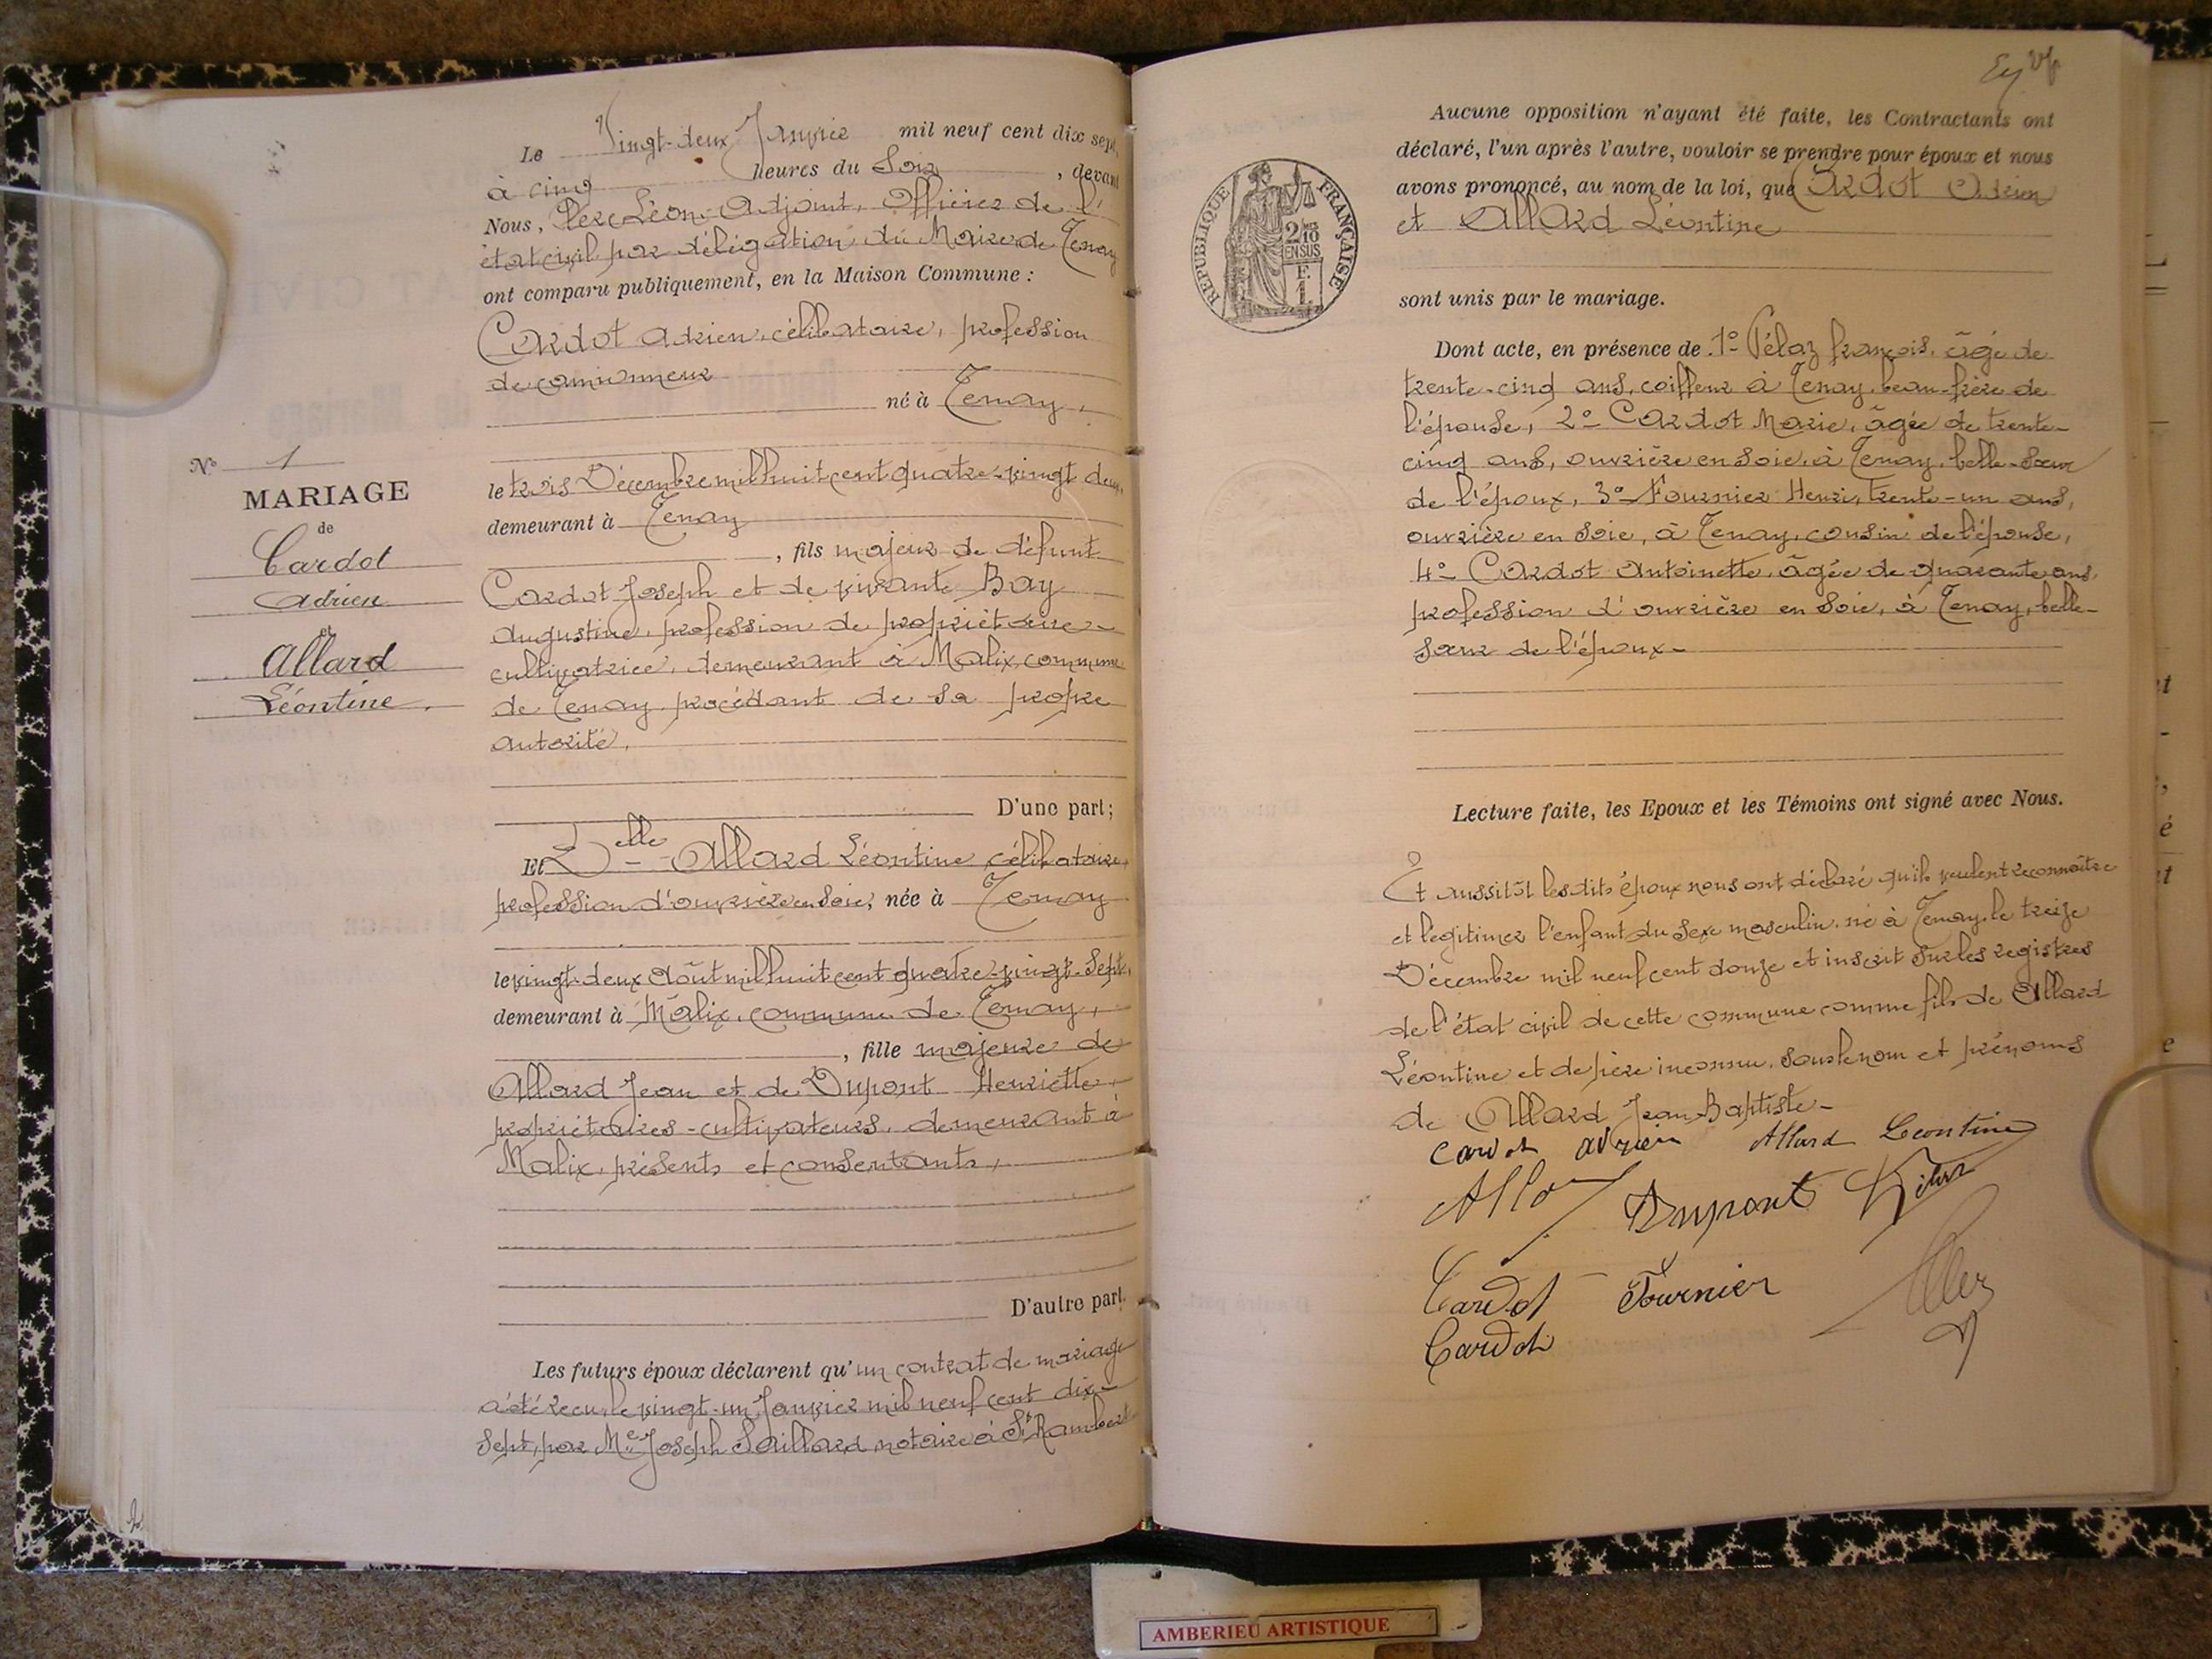 N° 1
MARIAGE
de
Cardot
Adrien
et
Allard
Léontine.
Le Vingt-deux Janvier mil neuf cent dix sept,
à cinq heures du Soir, devant
Nous, Léon, Adjoint, Officier de l'
état civil par délégation du Maire de Tenay
ont comparu publiquement, en la Maison Commune :
Cardot Adrien, célibataire, profession
de camionneur
né à Tenay,
le trois Décembre mil huit cent quatre-vingt deux,
demeurant à Tenay
, fils majeur de défunt
Cardot Joseph et de vivante Bay
Augustine, profession de propriétaire-
cultivatrice, demeurant à Malix, commune
de Tenay, procédant de sa propre
autorité,
D'une part;
Et Delle Allard Léontine, célibataire,
profession d'ouvrière en soie, née à Tenay
le vingt-deux Août mil huit cent quatre-vingt-sept,
demeurant à Malix, commune de Tenay,
, fille majeure de
Allard Jean et de Dupont Henriette,
propriétaires-cultivateurs, demeurant à
Malix, présents et consentants,
D'autre part.
Les futurs époux déclarent qu'un contrat de mariage
a été reçu, le vingt-un Janvier mil neuf cent dix-
sept, par Me Joseph Saillard, notaire à St Rambert
REPUBLIQUE FRANÇAISE
2/10
EN SUS
F.
1.
Aucune opposition n'ayant été faite, les Contractants ont
déclaré, l'un après l'autre, vouloir se prendre pour époux et nous
avons prononcé, au nom de la loi, que Cardot Adrien
et Allard Léontine
sont unis par le mariage.
Dont acte, en présence de 1° Pélaz françois, âgé de
trente-cinq ans, coiffeur à Tenay, beau-frère de
l'épouse, 2° Cardot Marie, âgée de trente-
cinq ans, ouvrière en soie, à Tenay, belle-sœur
de l'époux, 3° Fournier Henri, trente-un ans,
ouvrière en soie, à Tenay, cousin de l'épouse,
4° Cardot Antoinette, âgée de quarante ans,
profession d'ouvrière en soie, à Tenay, belle-
sœur de l'époux-
Lecture faite, les Epoux et les Témoins ont signé avec Nous.
Et aussitôt lesdits époux nous ont déclaré qu'ils veulent reconnaître
et légitimer l'enfant du sexe masculin, né à Tenay, le treize
Décembre mil neuf cent douze et inscrit sur les registres
de l'état civil de cette commune comme fils de Allard
Léontine et de père inconnu, sous le nom et prénoms
de Allard Jean-Baptiste-
Cardot Adrien Allard Léontine
Dupont
Cardot Fournier
Cardot
AMBERIEU ARTISTIQUE